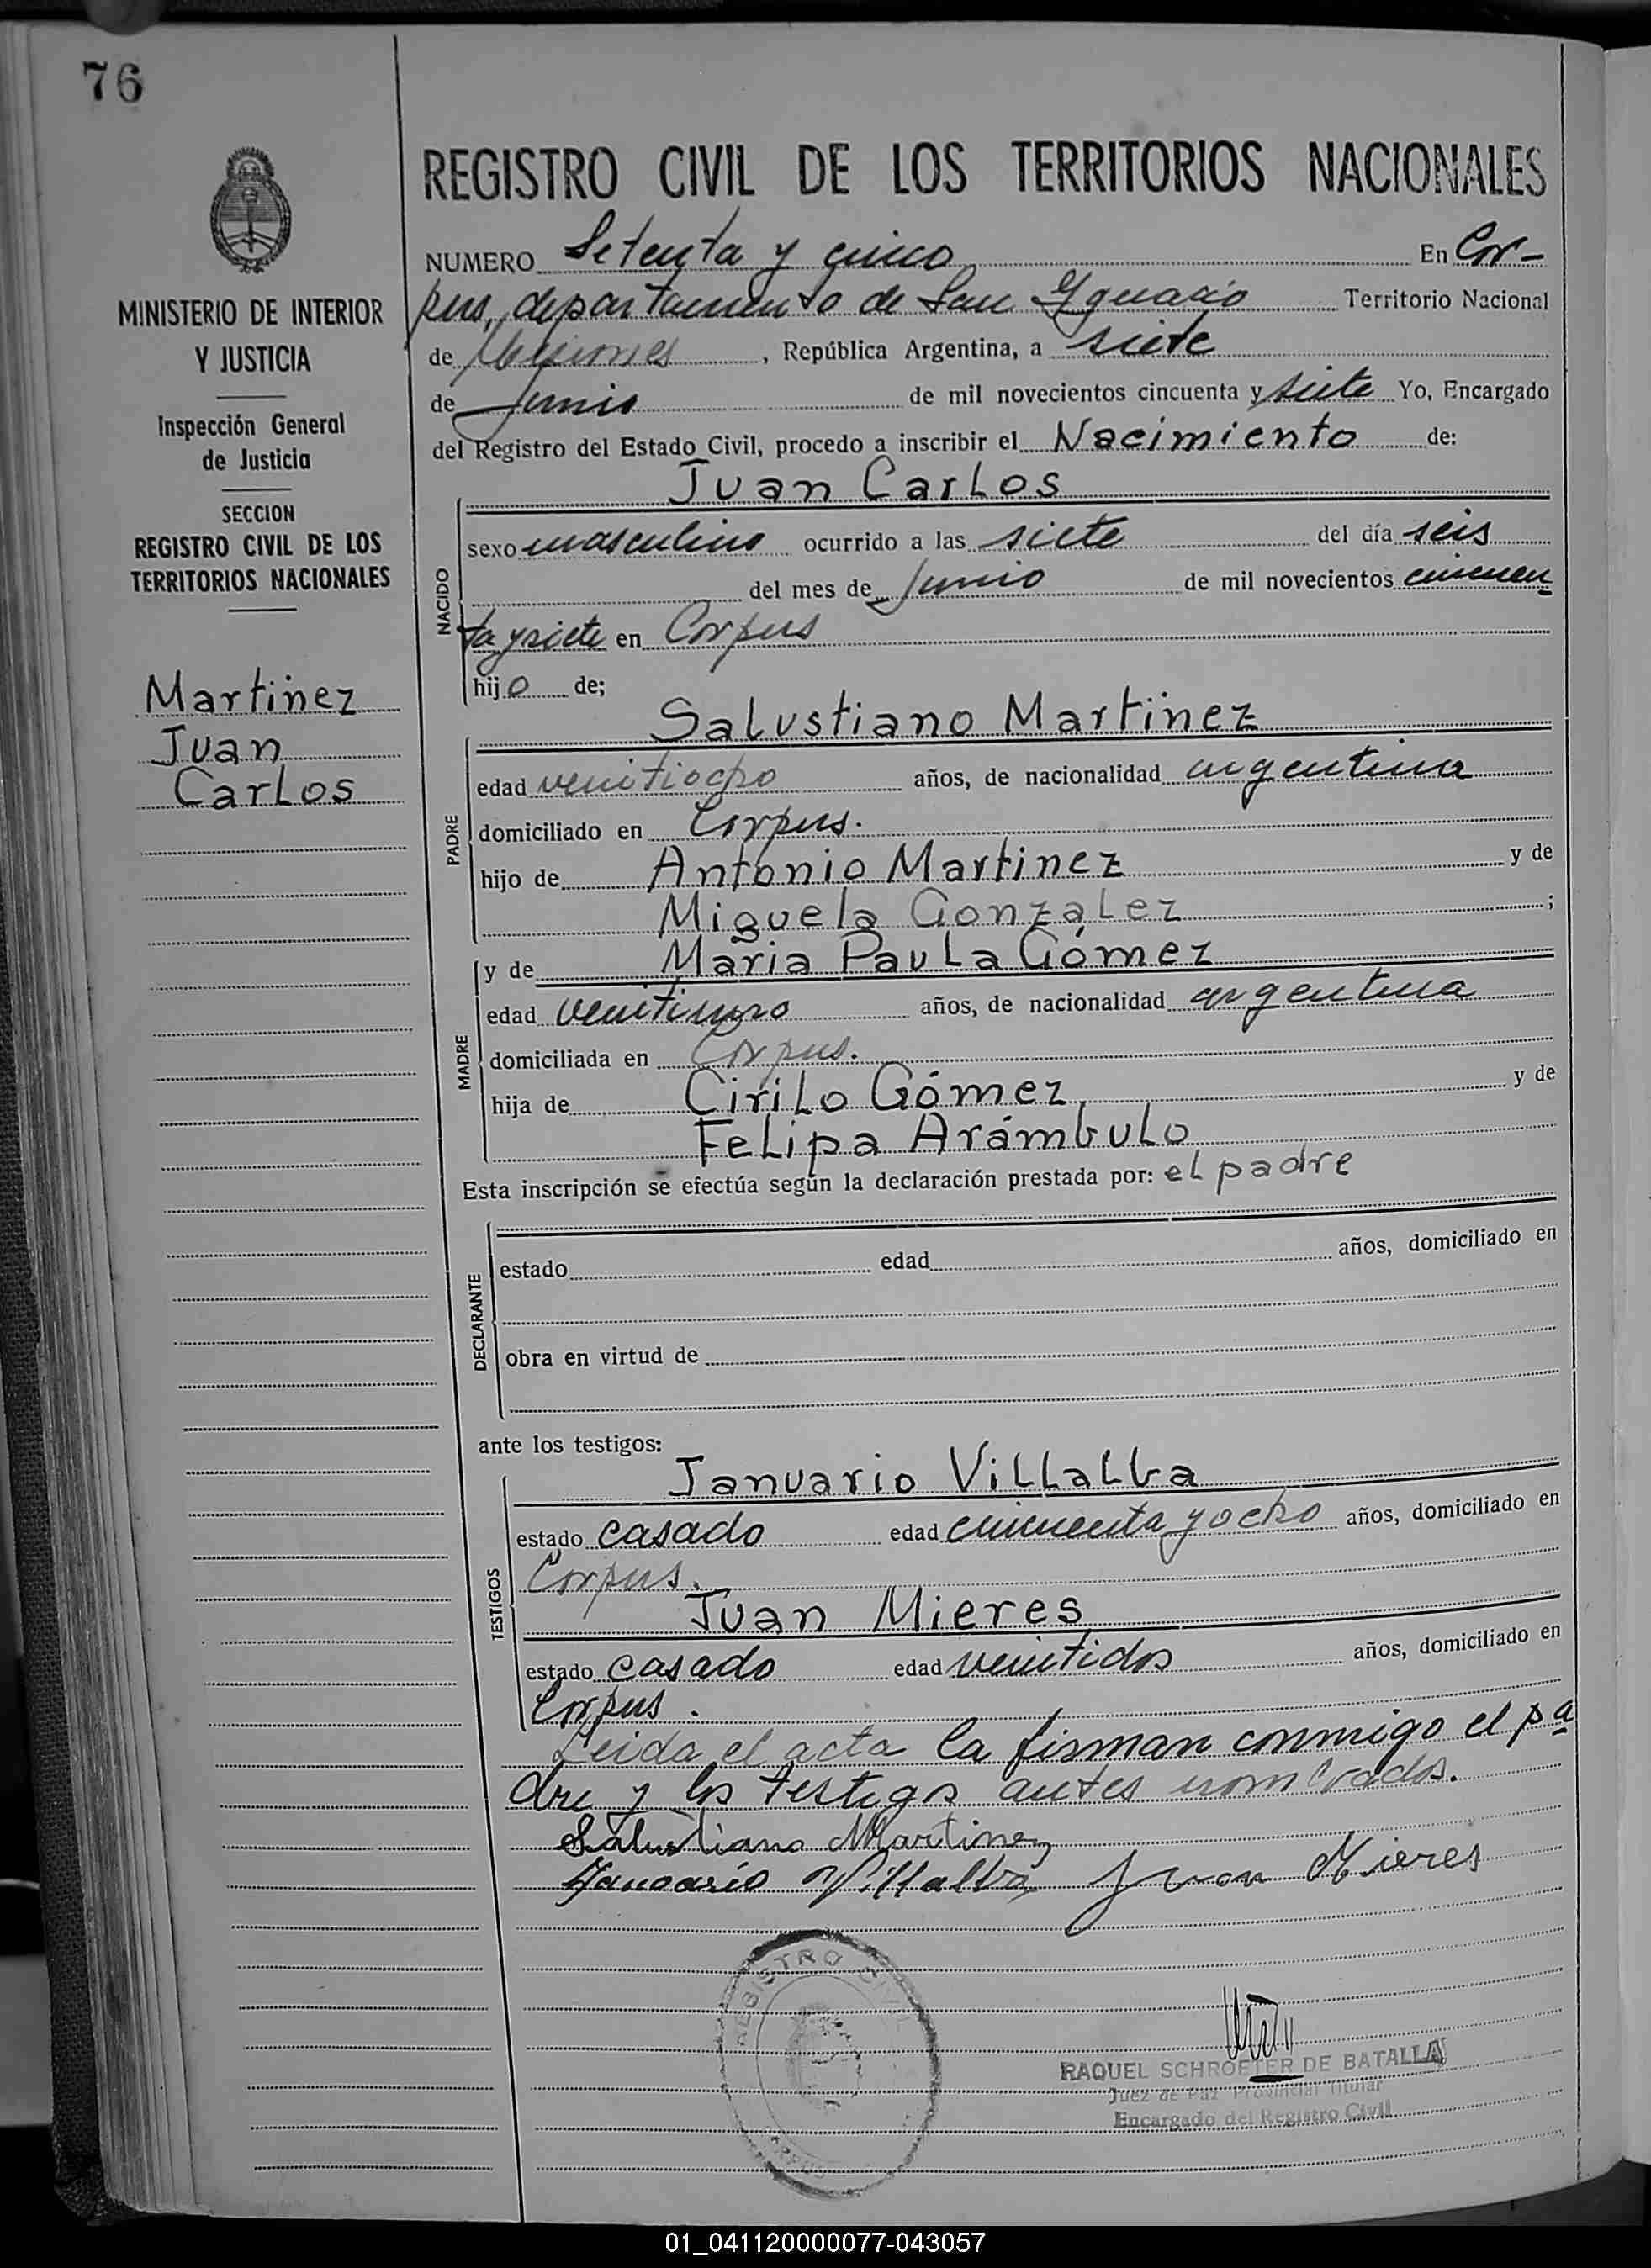 76
REGISTRO CIVIL DE LOS TERRITORIOS NACIONALES
MINISTERIO DE INTERIOR
Y JUSTICIA
Inspección General
de Justicia
SECCION
REGISTRO CIVIL DE LOS
TERRITORIOS NACIONALES
Martinez
Juan
Carlos
NUMERO Setenta y cinco En Cor-
pus, departamento de San Ygnacio Territorio Nacional
de Misiones, República Argentina, a siete
de Junio de mil novecientos cincuenta y siete Yo, Encargado
del Registro del Estado Civil, procedo a inscribir el Nacimiento de:
NACIDO
Juan Carlos
sexo masculino ocurrido a las siete del día seis
del mes de Junio de mil novecientos cincuen
ta y siete en Corpus
hijo de;
PADRE
Salustiano Martinez
edad venitiocho años, de nacionalidad argentina
domiciliado en Corpus.
hijo de Antonio Martinez y de
Miguela González ;
MADRE
y de Maria Paula Gómez
edad venitiuno años, de nacionalidad argentina
domiciliada en Corpus.
hija de Cirilo Gómez y de
Felipa Arámbulo
Esta inscripción se efectúa según la declaración prestada por: el padre
DECLARANTE
estado edad años, domiciliado en
obra en virtud de
ante los testigos:
TESTIGOS
Januario Villalba
estado casado edad cincuenta y ocho años, domiciliado en
Corpus.
Juan Mieres
estado casado edad venitidos años, domiciliado en
Corpus.
Leida el acta la firman conmigo el pa
dre y los testigos antes nombrados.
Salustiano Martinez
Januario Villalba Juan Mieres
REGISTRO CIVIL
CORPUS
RAQUEL SCHROETER DE BATALLA
Juez de Paz Provincial Titular
Encargado del Registro Civil
01_041120000077-043057